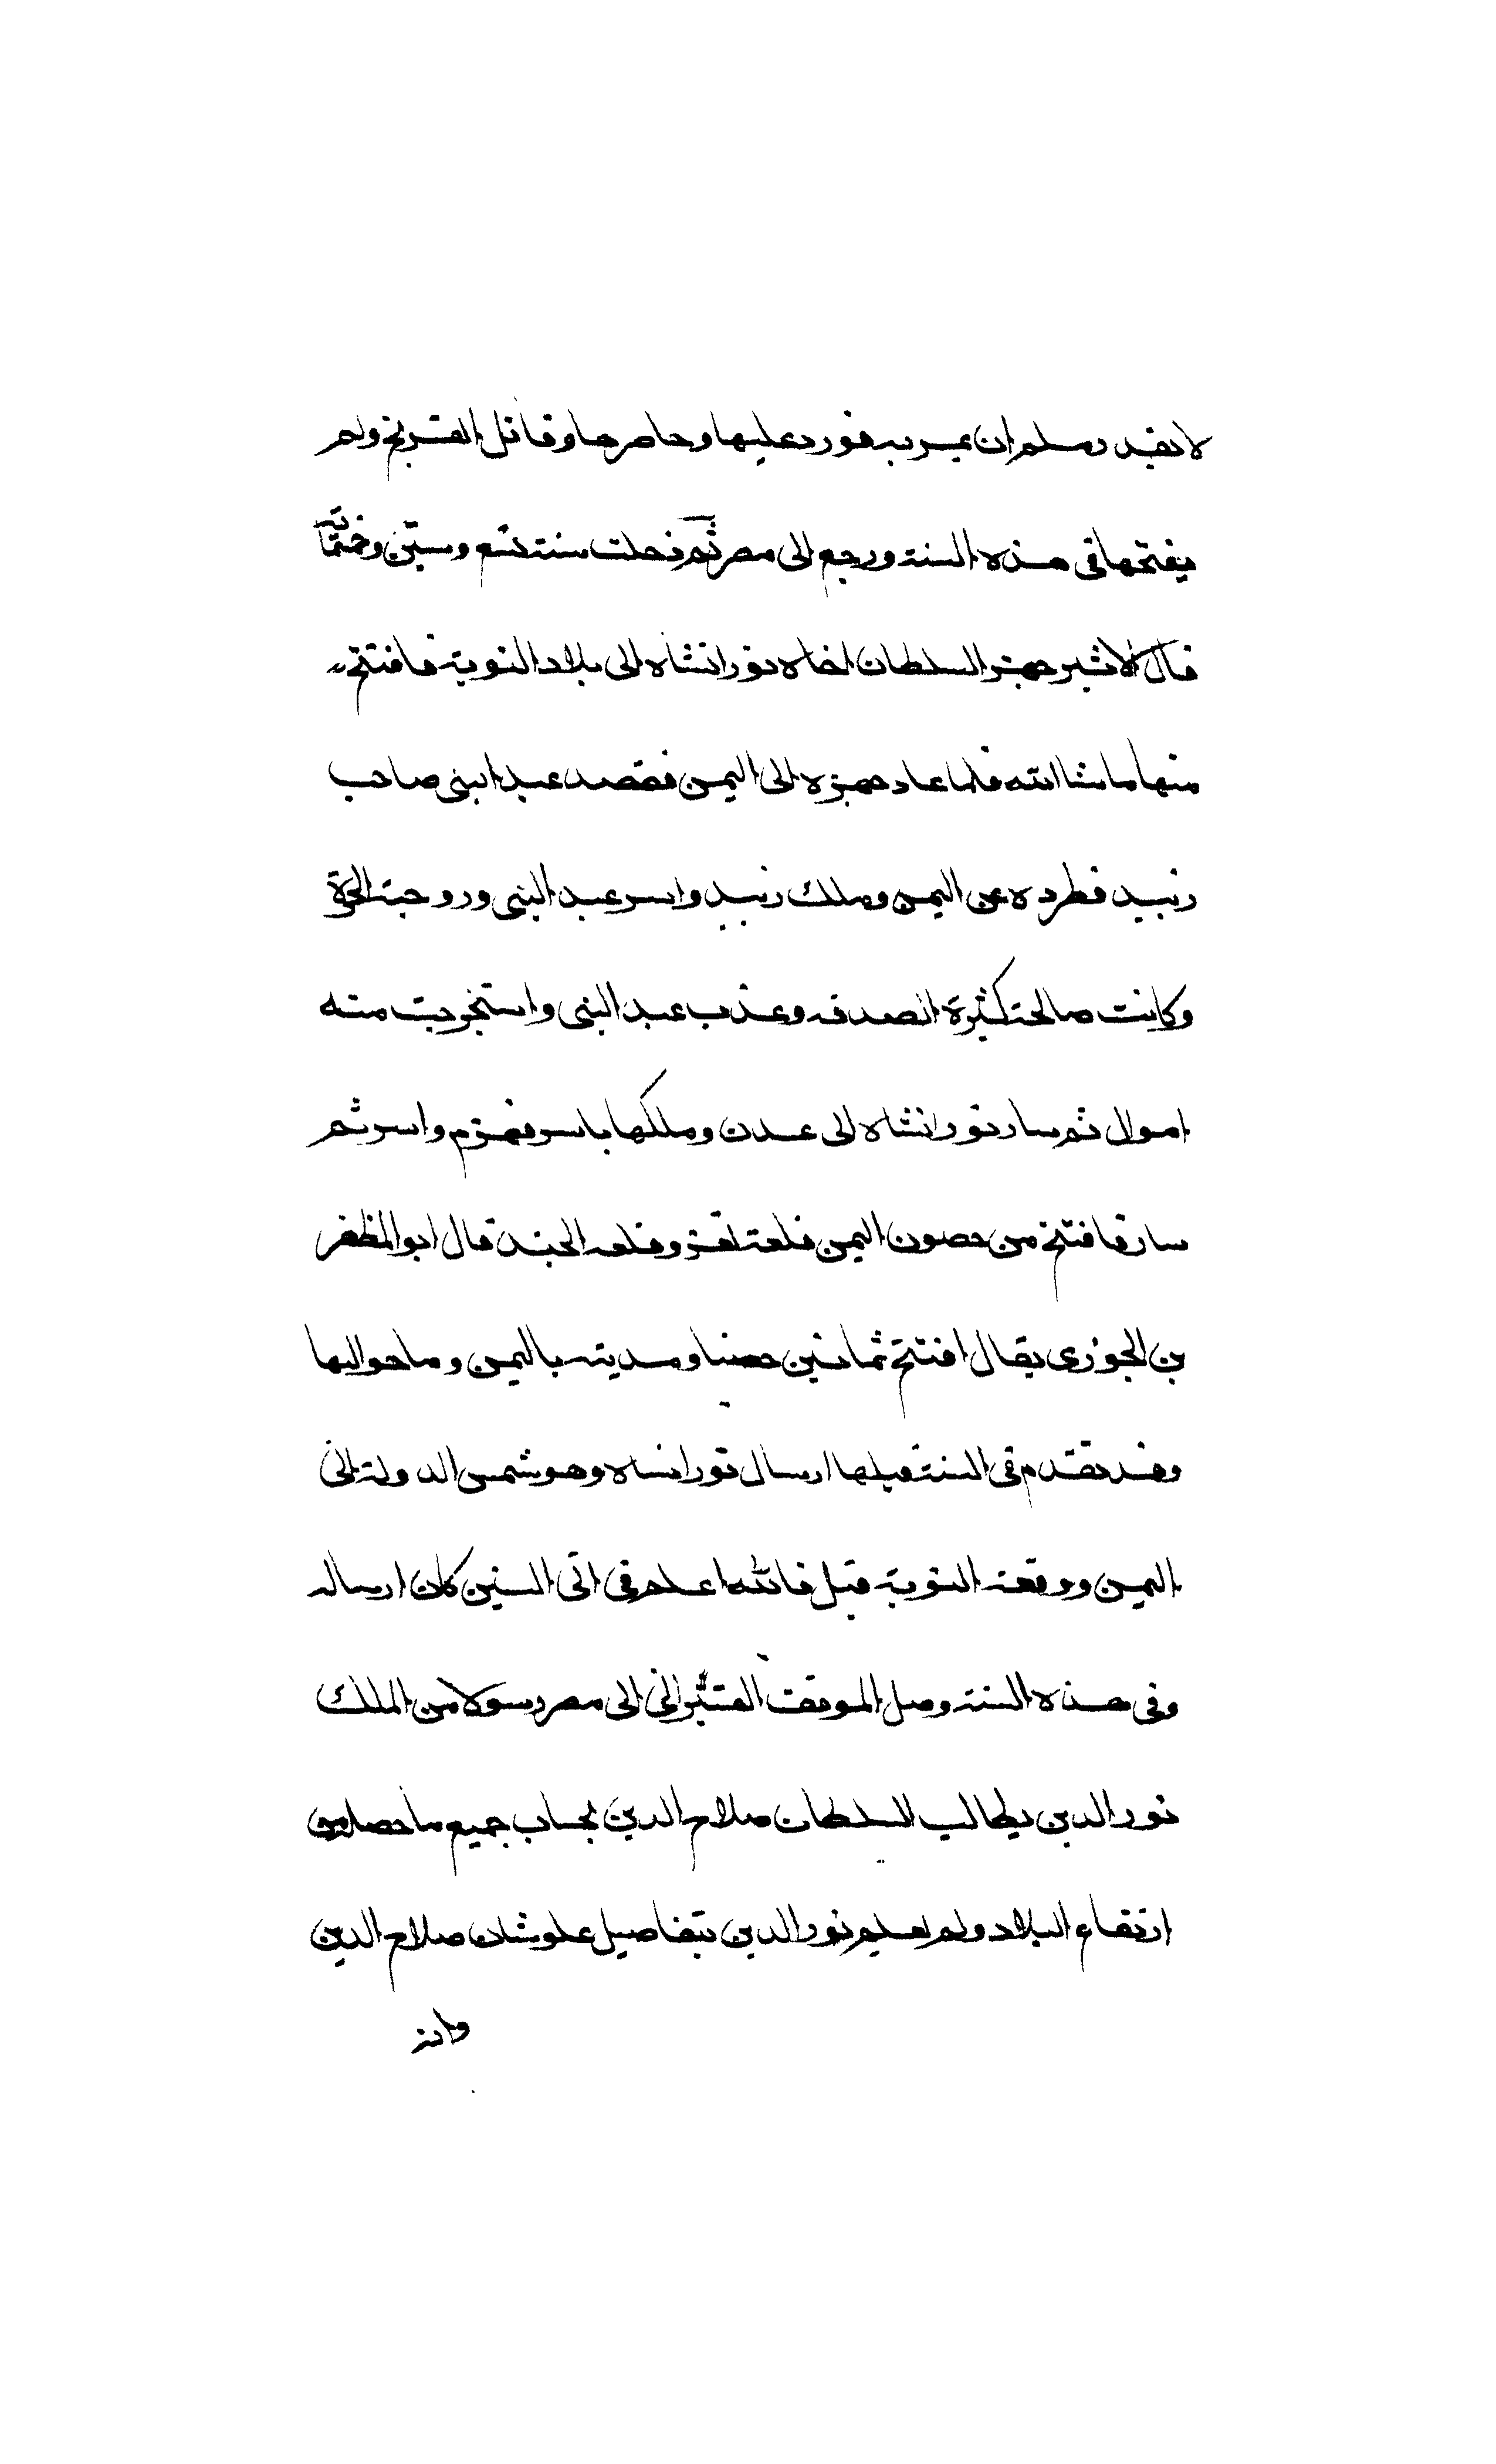 لا بقيد بعلم ان يمر به فورد عليها وحاصرها وقاتل الفرنج ولم
يفتحها فى هذه السنة ورجع الى مصر ثم دخلت سنة تسع وستين وخمسمائة
قال الاثير جهز السلطان اخاه تورانشاه الى بلاد النوبة فافتتح
منها ما شا الله فلما عاد جهزه الى اليمن فقصد عبد النبى صاحب
زبيد فطرده عن اليمن وملك زبيد واسر عبد النبى وزوجته الحرة
وكانت صالحة كثيرة الصدقه وعذب عبد النبى واستخرجت منه
اموال ثم سار تورانشاه الى عدن وملكها ياسر فهزم واسر ثم
سار فافتتح من حصون اليمن قلعة تعز وقلعه الجند قال ابو المظفر
بن الجوزى يقال افتتح ثمانين حصنا ومدينه باليمن وما حواليها
وقد تقدم فى السنة قبلها ارسال تورانساه وهو شمس الدولة الى
اليمن ووقعة النوبة قبل فالله اعلم فى اتى السنين كان ارساله
وفى هذه السنة وصل الموفق القيسرانى الى مصر رسولا من الملك
نور الدين يطالب السلطان صلاح الدين بحساب جميع ما حصل من
ارتفاع البلاد ولم يعلم نور الدين بتفاصيل علو شان صلاح الدين